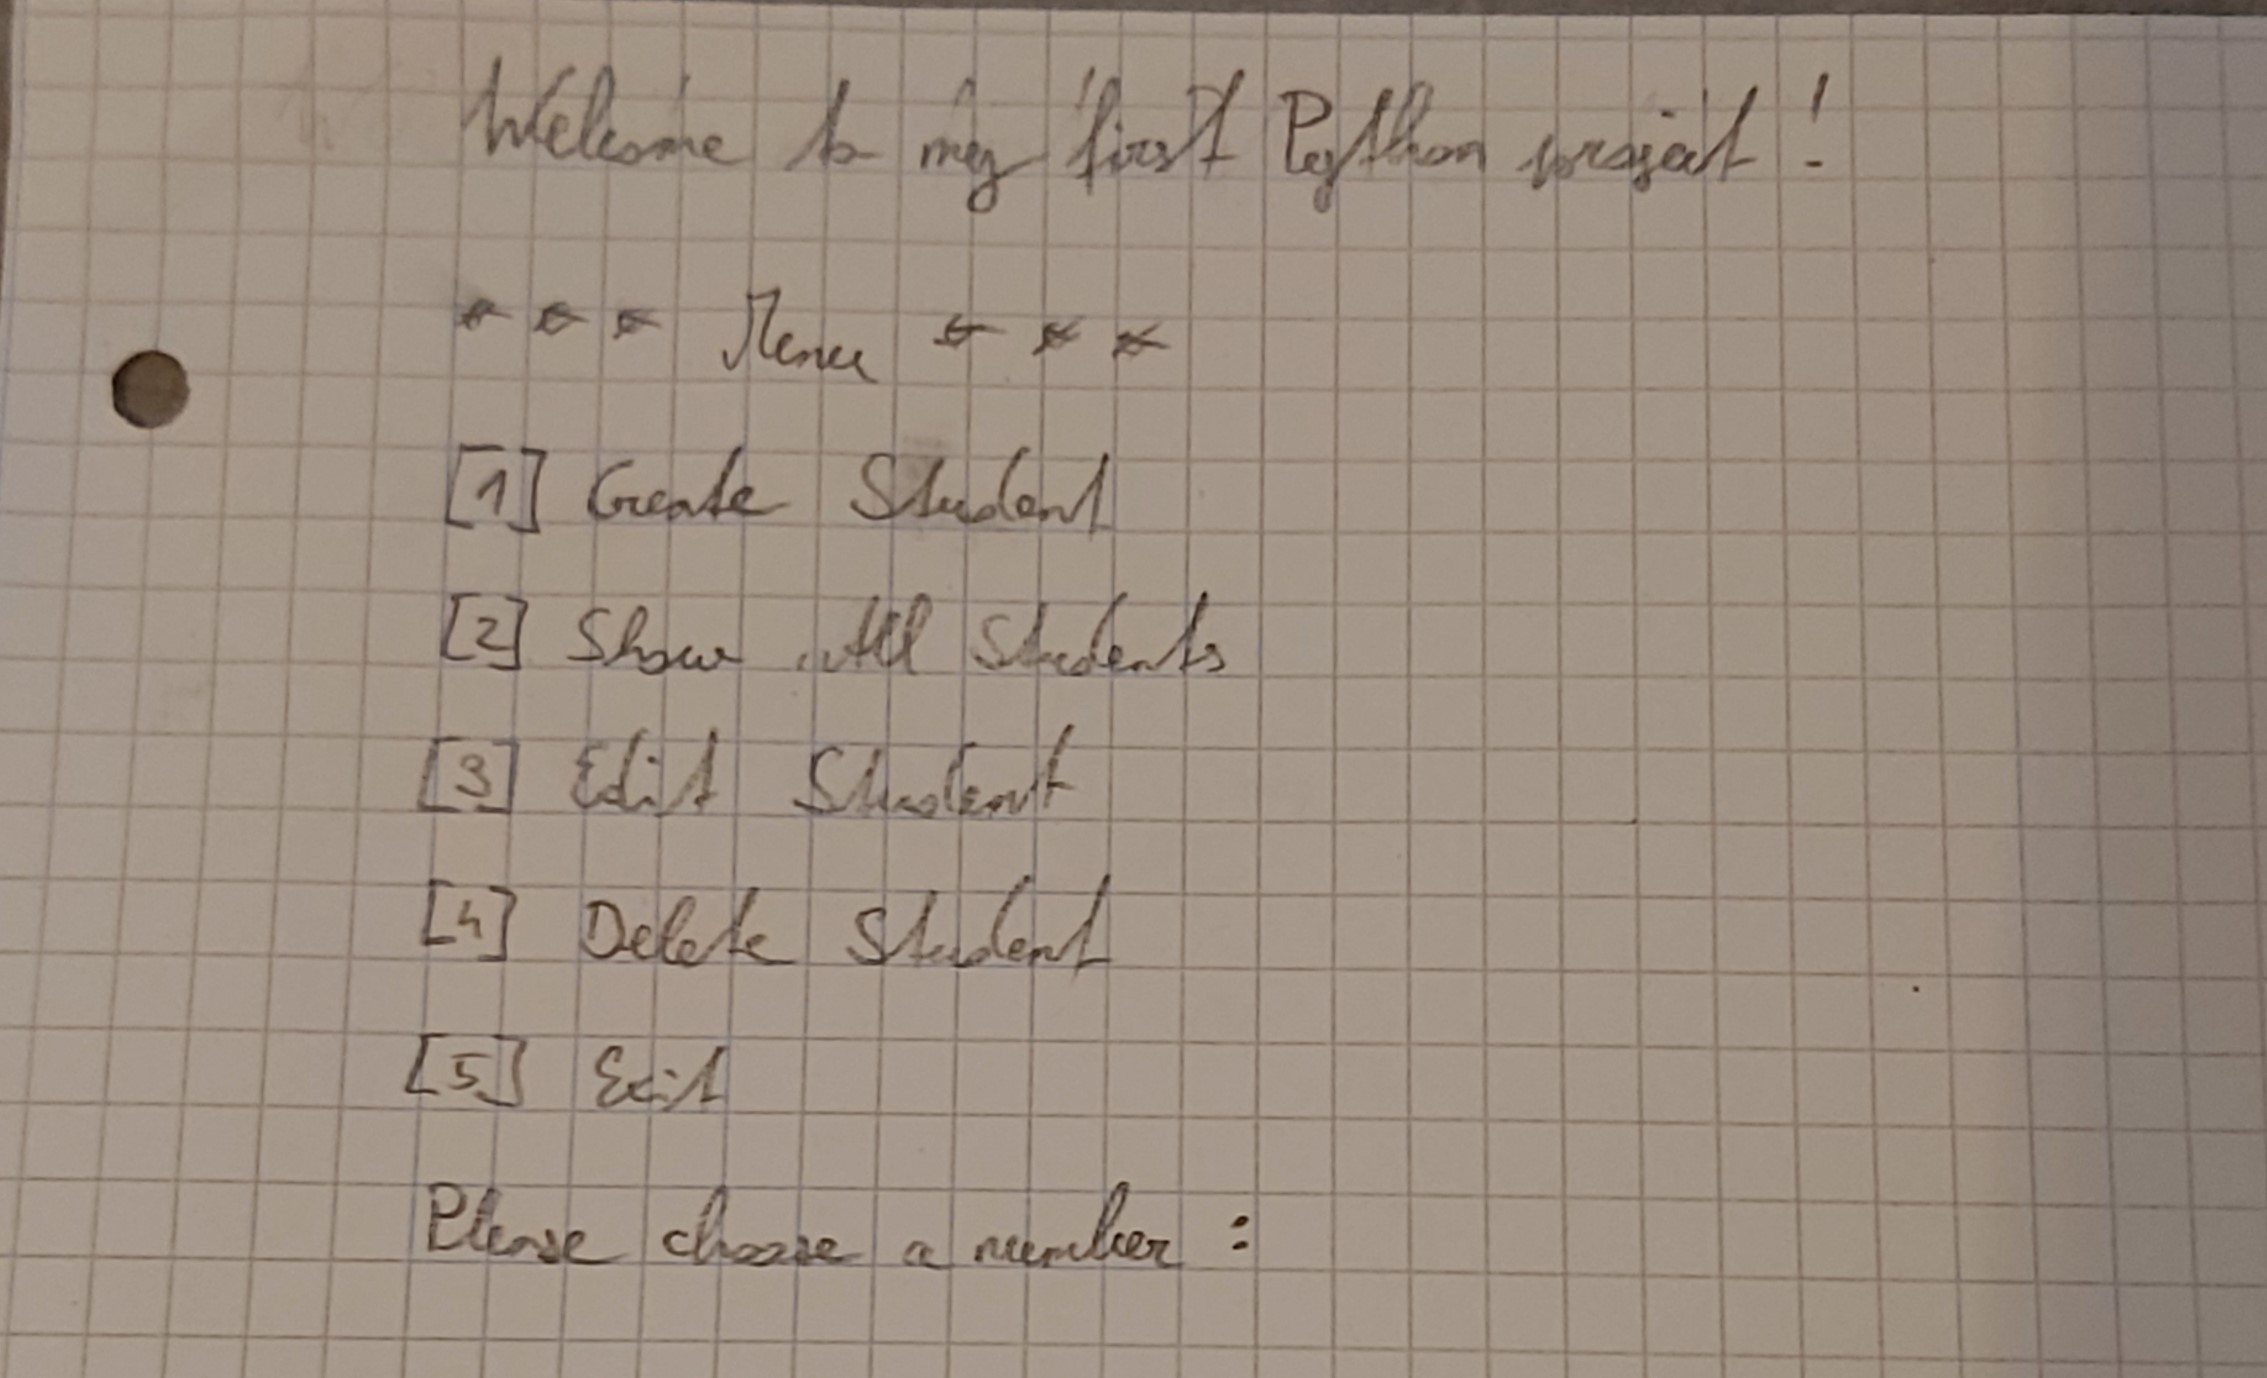 Welcome to my first Python project!
* * * Menu * * *
[1] Create Student
[2] Show All Students
[3] Edit Student
[4] Delete Student
[5] Exit
Please choose a number :